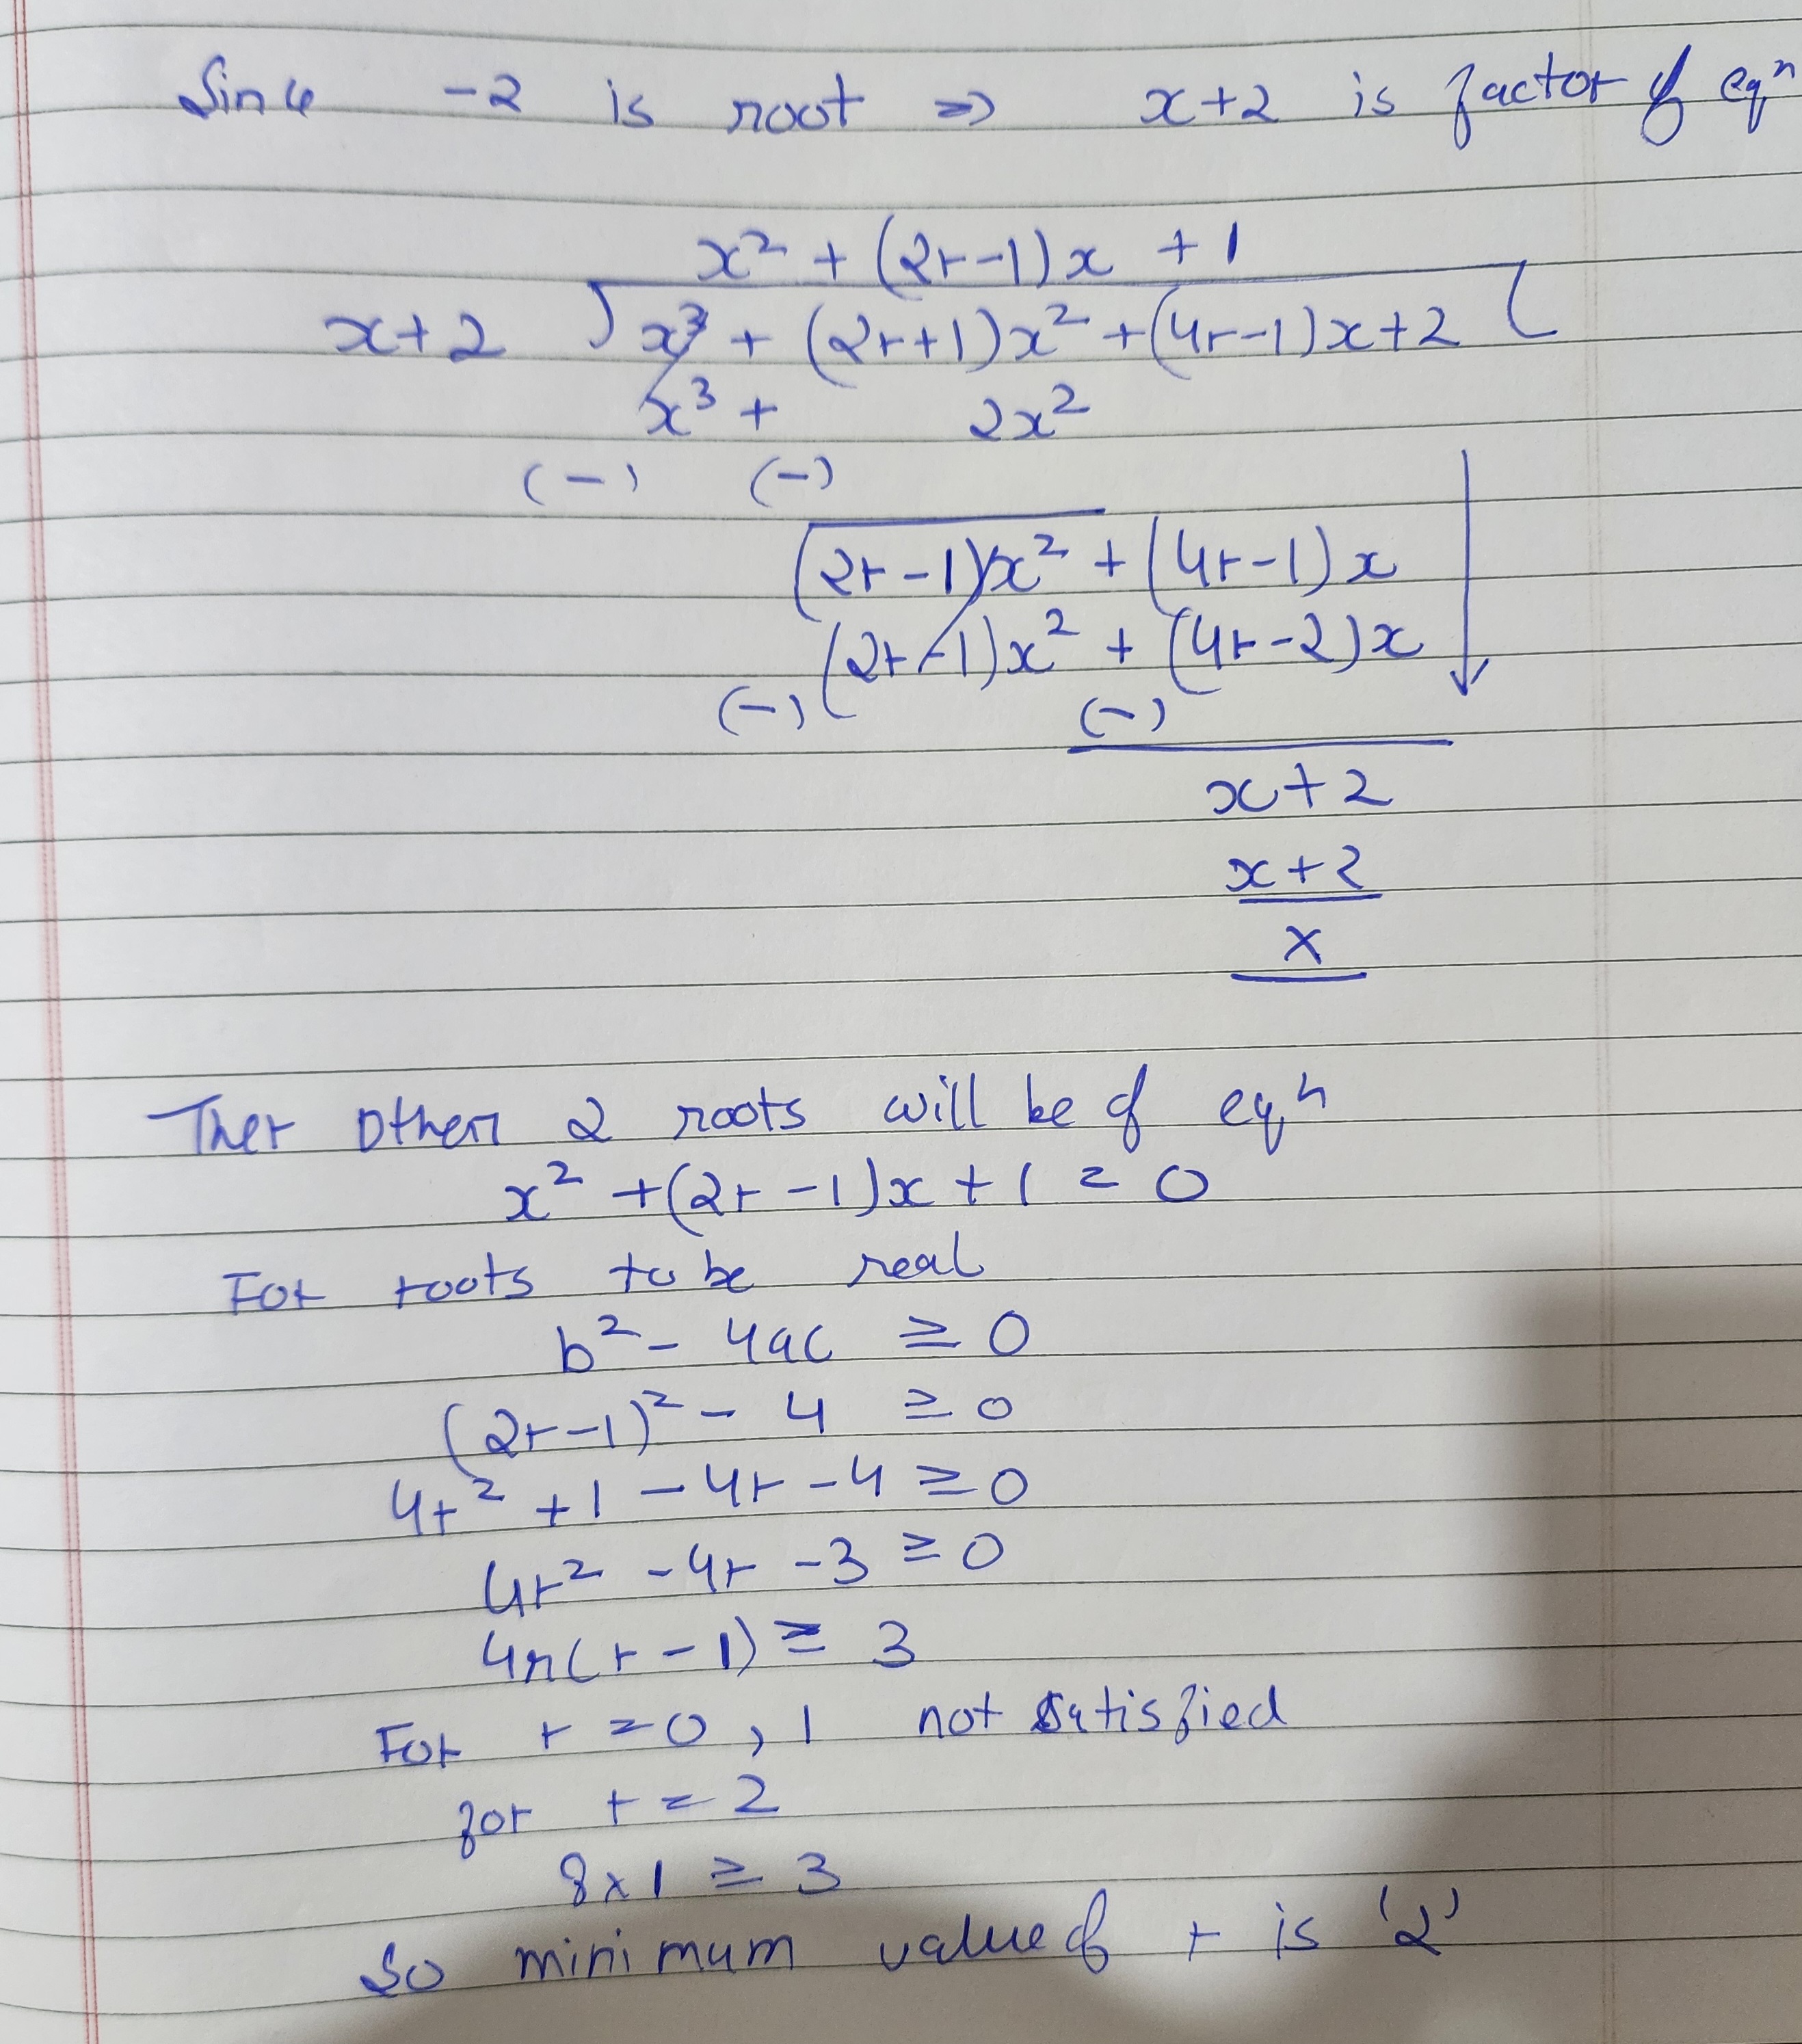 Since -2 is root => x+2 is factor of eqn
x² + (2r-1)x + 1
x+2 ) x³ + (2r+1)x² + (4r-1)x+2 (
x³ + 2x²
(-) (-)
(2r-1)x² + (4r-1)x
(2r-1)x² + (4r-2)x
(-) (-)
x+2
x+2
x
Ther other 2 roots will be of eqn
x² +(2r-1)x + 1 = 0
For roots to be real
b² - 4ac ≥ 0
(2r-1)² - 4 ≥ 0
4r² +1 -4r -4 ≥ 0
4r² -4r -3 ≥ 0
4r(r-1) ≥ 3
For r = 0, 1 not satisfied
for r = 2
8x1 ≥ 3
So minimum value of r is '2'